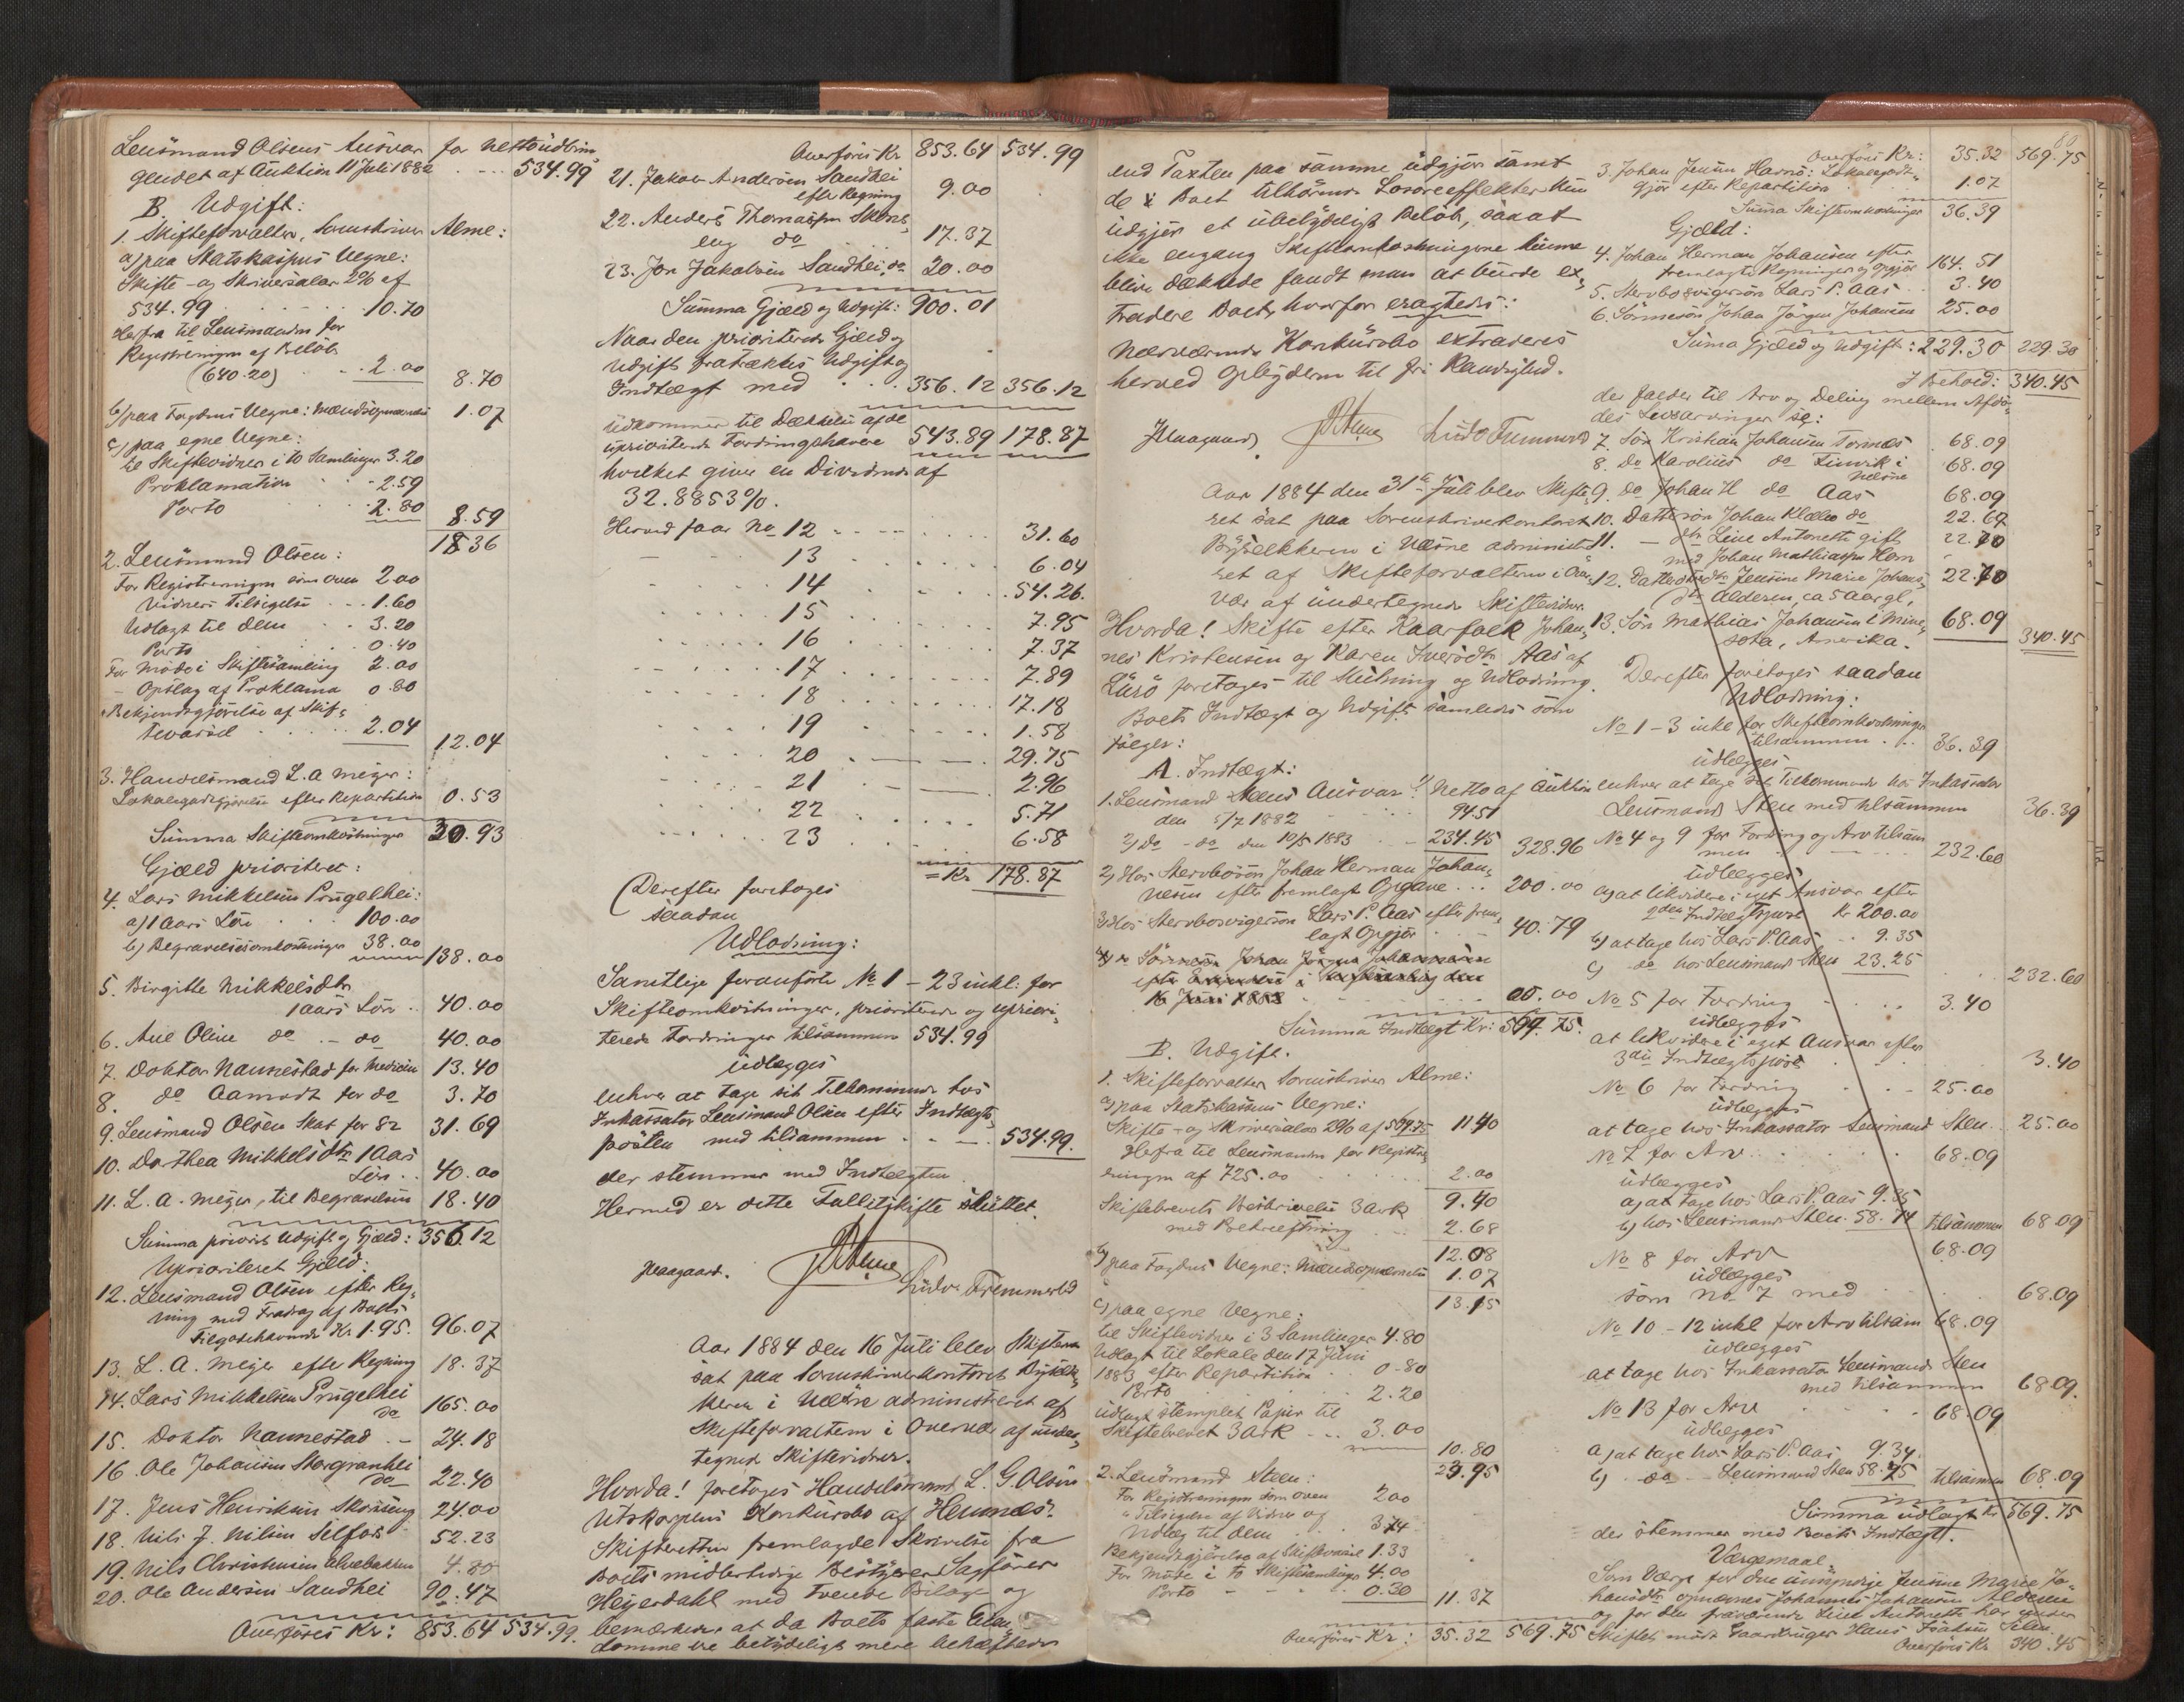 Lensmand Olsens Ansvar for Nettoudbrin
gendet af Auktion 11 Juli 1882 . . . 534.99
B. Udgift:
1. Skifteforvalter, Sorenskriver Alme:
a) paa Statskassens Vegne:
Skifte- og Skriversalær 2% af
534.99 . . . 10.70
Herfra til Lensmanden for
Registreringen af Beløb
(640.20) . . 2.00 8.70
b) paa Fogdens Vegne: 1.07
c) paa egne Vegne:
til Skiftevidner i to Samlinger 3.20
Proklamation . . 2.59
Porto . . 2.80 8.59
18 36
2. Lensmand Olsen:
For Registreringen som oven 2.00
Vidners Tilsigelse . . . 1.60
Udlagt til dem . . 3.20
Porto . . 0.40
For Møde i Skiftesamling 2.00
- Opslag af Proklama 0.80
" Bekjendtgjørelse af Skif-
tevarsel . . . 2.04 12.04
3. Handelsmand L. A. Meyer:
Lokalegodtgjørelse efter Repartition 0.53
Summa Skifteomkostninger 30.93
Gjæld prioriteret:
4. Lars Mikkelsen Prygelhei:
a) 1 Aars Løn . . 100.00
b) Begravelsesomkostninger 38.00 138.00
5. Birgitte Mikkelsdtr
1 aars Løn . . 40.00
6. Ane Oline do - do 40.00
7. Doktor Nannestad for Medicin 13.40
8. do Aamodt for do 3.70
9. Lensmand Olsen Skat for 82 31.69
10. Dorthea Mikkelsdtr 1 Aars
Løn . . 40.00
11. L. A. Meyer, til Begravelsen 18.40
Summa priorit. Udgift og Gjæld: 356.12
Uprioriteret Gjæld:
12. Lensmand Olsen efter Reg-
ning med Fradrag af Boets
Tilgodehavende Kr. 1.95. 96.07
13. L. A. Meyer efter Regning 18.37
14. Lars Mikkelsen Prygelhei
do 165.00
15. Doktor Nannestad . - 24.18
16. Ole Johansen Storgranhei
do 22.40
17. Jens Henriksen Skonseng 24.00
18. Nils J. Nilsen Selfors 52.23
19. Nils Christensen 4.80
20. Ole Andersen Sandhei 90.47
Overføres Kr: 853.64 534.99.
Overføris Kr 853.64 534.99
21. Jakob Andersen Sandhei
efter Regning 9.00
22. Anders Thomassen Skons-
eng do . . . 17.37
23. Jon Jakobsen Sandhei, do 20.00
Summa Gjæld og Udgift: 900.01
Naar den prioriterede Gjæld og
Udgift fratrækkes Udgift og
Indtægt med . . . 356.12 356.12
udkommer til Dækkelse af de
uprioriterede Fordringshavere 543.89 178.87
hvilket giver en Dividende af
32.8853%.
Herved faar No 12 . . . 31.60
13 . . . 6.04
14 . . . 54.26.
15 . . . 7.95
16 . . . 7.37
17 . . . 7.89
18 . . . 17.18
19 . . . 1.58
20 . . . 29.75
21 . . . 2.96
22 . . . 5.71
23 . . . 6.58
= Kr 178.87
Derefter foretages
saadan
Udlodning:
Samtlige foranførte No 1 - 23 inkl. for
Skifteomkostninger, prioriterede og upriori-
terede Fordringer tilsammen 534.99
udlægges
enhver at tage sit Tilkommende hos
Inkassator Lensmand Olsen efter Indtægts-
posten med tilsammen . . . 534.99.
der stemmer med Indtægten
Hermed er dette Fallitskifte sluttet.
Haagaard. Alme Ludv. Tremmerlid
Aar 1884 den 16 Juli blev Skifteret
sat paa Sorenskriverkontoret Bysæl-
keren i Næsne administreret af
Skifteforvalteren i Overvær af under-
tegnede Skiftevidner.
Hvorda! foretoges Handelsmand L. G. Olsen
Utskarpens Konkursbo af Hemnæs.
Skifteretten fremlagde Skrivelse fra
Boets midlertidige Bestyrer Sagfører
Heyerdahl med tvende Bilage og
bemærkede at da Boets faste Eien-
domme ere betydeligt mere behæftede
end Taxten paa samme udgjør samt
de Boet tilhørende Løsøreeffekter kun
udgjør et ubetydeligt Beløb, saaat
ikke engang Skifteomkostningerne kunne
blive dækkede fandt man at burde ex-
tradere Boet, hvorfor eragtedes:
Nærværende Konkursbo extraderes
herved Opbyderen til fri Raadighed.
Haagaard. Alme Ludv Tremmerlid
Aar 1884 den 31te Juli blev Skifte-
ret sat paa Sorenskriverkontoret
i Næsne administre-
ret af Skifteforvalteren i Over-
vær af undertegnede Skiftevidner.
Hvorda! Skifte efter Kaarfolk Johan-
nes Kristensen og Karen Iversdtr Aas af
Lurø foretages til Slutning og Udlodning.
Boets Indtægt og Udgift samledes som
følger:
A. Indtægt:
1. Lensmand Steens Ansvar 1) Netto af Auktion
den 5/7 1882 . . . 94.51
2) Do - do den 10/5 1883 . . 234.45 328.96
2) Hos Stervbosøn Johan Herman Johan-
nesen efter fremlagt Opgave . . . 200.00
3) Hos Stervbosvigersøn Lars P. Aas efter frem-
lagt Opgjør . . . 40.79
Summa Indtægt Kr: 569.75.
B. Udgift.
1. Skifteforvalter Sorenskriver Alme:
a) paa Statskassens Vegne:
Skifte- og Skriversalær 2% af 569.75 11.40
Herfra til Lensmanden for Registre-
ringen af 725.00 . . . 2.00
9.40
Skiftebrevets Beskrivelse 3 Ark
med Bekræftning . . . 2.68
12.08
b) paa Fogdens Vegne: 1.07
13.15
c) paa egne Vegne:
til Skiftevidner i 3 Samlinger 4.80
Udlagt til Lokale den 17 Juni
1883 efter Repartition . . 0.80
Porto . . . 2.20
Udlagt stemplet Papir til
Skiftebrevet 3 Ark . . . 3.00
10.80
23.95
2. Lensmand Steen:
For Registreringen som oven 2.00
" Tilsigelse af Vidner og
Udlæg til dem . . . 3.74
Bekjendtgjørelse af Skiftevarsel 1.33
For Møde i to Skiftesamlinger 4.00
Porto - - - 0.30 11.37
Overføres Kr: 35.32 569.75
80
Overføris Kr: 35.32 569.75
3. Johan Jensen Havnø: Lokalegodt-
gjør efter Repartition . . . 1.07
Summa Skifteomkostninger 36.39
Gjæld:
4. Johan Herman Johansen efter
fremlagte Regninger og Opgjør 164.51
5. Stervbosvigersøn Lars P. Aas . . 3.40
6. Sønnesøn Johan Jørgen Johansen 25.00
Summa Gjæld og Udgift: 229.30 229.30
I Behold: 340.45
der falder til Arv og Deling mellem Afdø-
des Livsarvinger se:
7. Søn Kristian Johansen Tornæs . 68.09
8. Do Karolius do Finvik i
Næsne 68.09
9. do Johan H do Aas 68.09
10. Dattersøn Johan Klæbo do 22.69
11. - dtr Line Antonette gift
med Johan Mathiassen Horn 22.70
12. Datterdtr Jensine Marie Johans-
dtr Alderen, ca 5 Aar gl. 22.70
13. Søn Mathias Johansen i Mine-
sota, Amerika. 68.09 340.45
Derefter foretoges saadan
Udlodning:
No 1 - 3 inkl for Skifteomkostninger
tilsammen . . . 36.39
udlægges
enhver at tage sit Tilkommende hos Inkassator
Lensmand Steen med tilsammen 36.39
No 4 og 9 for Fordring og Arv tilsam
men . . . 232.60
udlægges
a) at likvidere i eget Ansvar efter
2den Indtægtspost Kr 200.00
b) at tage hos Lars P. Aas . . 9.35
c) do hos Lensmand Steen 23.25 . . 232.60
No 5 for Fordring . . . 3.40
udlægges
at likvidere i eget Ansvar efter
3die Indtægtspost . . . 3.40
No 6 for Fordring . . . 25.00
udlægges
at tage hos Inkassator Lensmand Steen . . 25.00
No 7 for Arv . . . 68.09
udlægges
a) at tage hos Lars P. Aas 9.35
b) hos Lensmand Steen 58.74 tilsammen 68.09
No 8 for Arv 68.09
udlægges
som No 7 med . . . 68.09
No 10 - 12 inkl for Arv tilsam 68.09
udlægges
at tage hos Inkassator Lensmand Steen
med tilsammen 68.09.
No 13 for Arv . . . 68.09
udlægges
a) at tage hos Lars P. Aas 9.34.
b) - do - Lensmand Steen 58.75 tilsammen 68.09
Summa udlagt Kr 569.75
der stemmer med Boets Indtægt.
Værgemaal.
Som Værge for den umyndige Jensine Marie Jo-
hansdtr opnævnes Johannes Johansen Alderen
og for den fraværende Line Antonette har under
Skiftet mødt Gaardbruger Hans
Overføris Kr 340.45